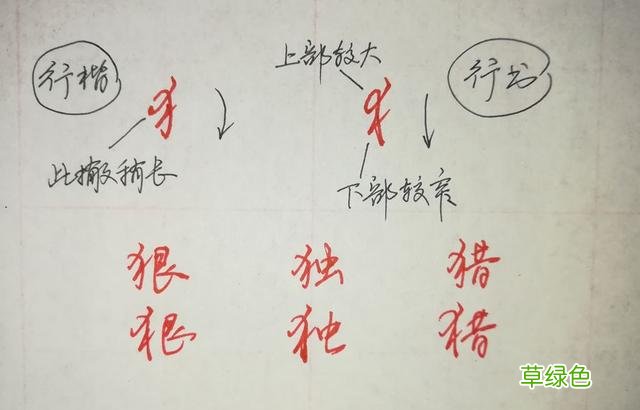 上部较大
行楷 犭 犭 行书
此撇稍长 下部较窄
狠 独 猎
狠 独 猎
草绿色